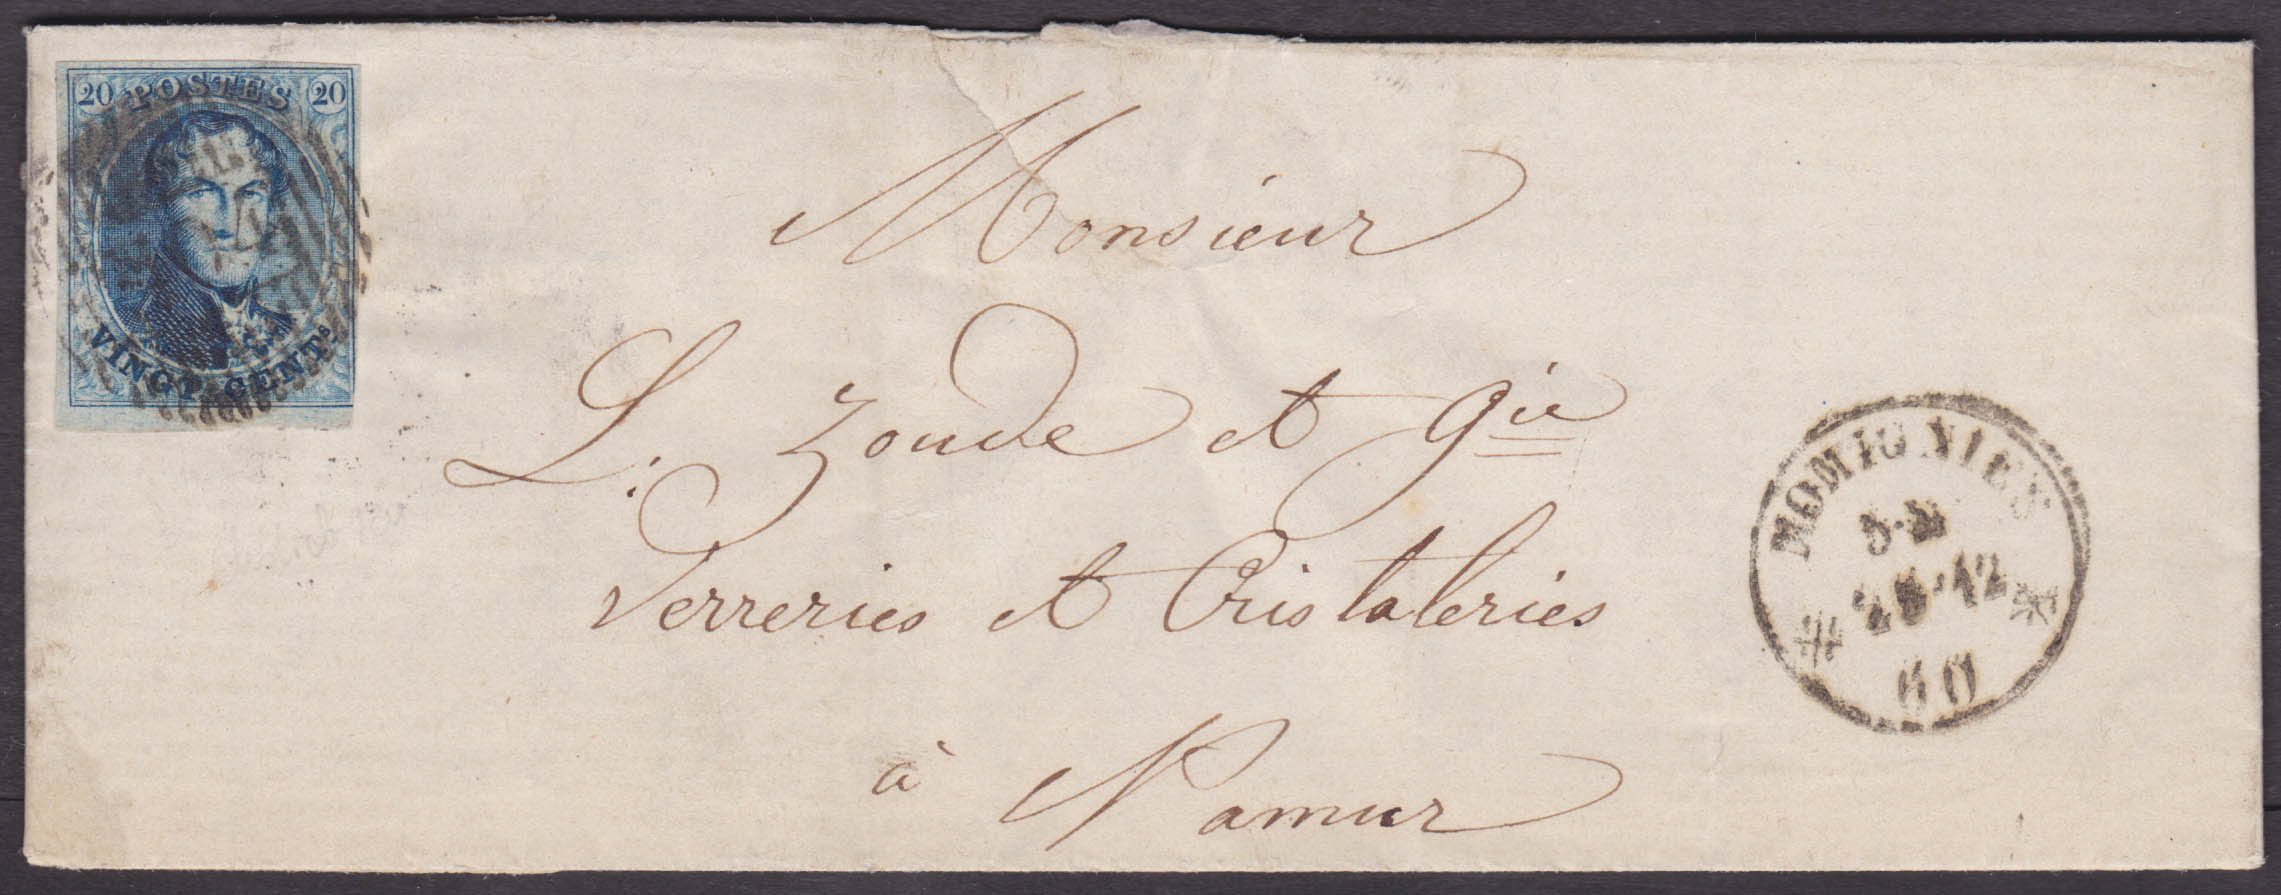 20 POSTES 20
VINGT CENTS
Monsieur
L. Zoude et Cie
Verreries et Cristaleries
à Namur
MOMIGNIES
12
60